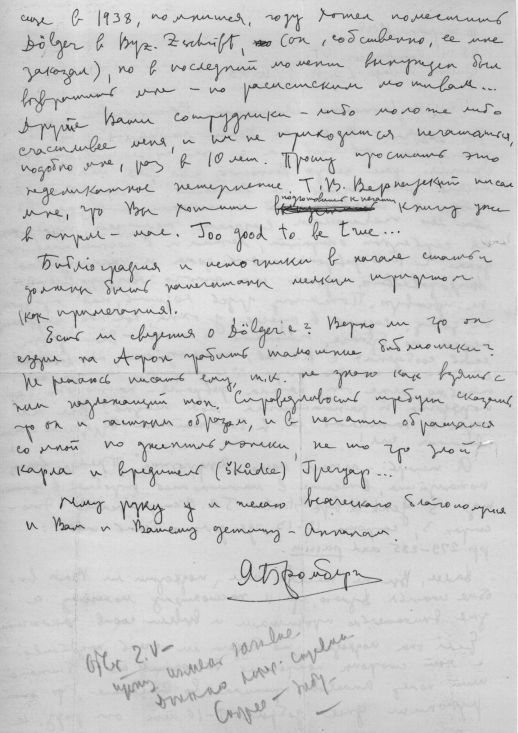 еще в 1938, помнится, году хотел поместить
Dölger в Byz. Zschrift, (он, собственно, ее мне
заказал), но в последний момент вынужден был
возвратить мне – по расистским мотивам...
Другие Ваши сотрудники – либо моложе либо
счастливее меня, и им не приходится печататься,
подобно мне, раз в 10 лет. Прошу простить это
неделикатное нетерпение. Г. В. Вернадский писал
мне, что Вы хотите подготовить к печати книгу уже
в апреле – мае. Too good to be true...
Библиография и источники в начале статьи
должны быть напечатаны мелким шрифтом
(как примечания).
Есть ли сведения о Dölger'е? Верно ли что он
ездил на Афон грабить тамошние библиотеки?
Не решаюсь писать ему, т.к. не знаю как взять с
ним надлежащий тон. Справедливость требует сказать,
что он и частным образом, и в печати обращался
со мной по джентльмэнски, не то что злой
карла и вредитель (škůdce) Грегуар...
Жму руку и желаю всяческого благополучия
и Вам и Вашему детищу – Анналам.
АБромберг
Отв 2.V –